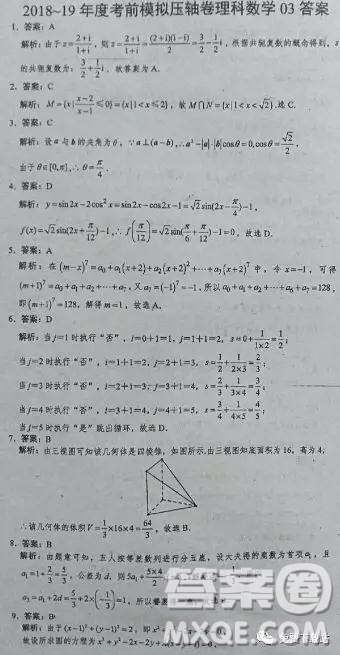 2018~19年度考前模拟压轴卷理科数学03答案
1. 答案：A
解析：由于z=(2+i)/(1+i), ∴z=(2+i)/(1+i)=(2+i)(1-i)/2=3/2-1/2 i, 根据共轭复数的概念得到, z
的共轭复数为: 3/2+1/2 i. 故答案为A.
2. 答案：C
解析：M={x|(x-2)/(x-1)≤0}={x|1<x≤2}, 故M∩N={x|1<x<√2}.选C.
3. 答案：C
解析：设a与b的夹角为θ, ∵a⊥(a-b), ∴a²-|a|·|b|cosθ=0,cosθ=√2/2,
由于θ∈[0,π], ∴θ=π/4.
4. 答案：D
解析：y=sin2x-2cos²x=sin2x-cos2x-1=√2sin(2x-π/4)-1,
f(x)=√2sin(2x+π/12)-1, ∴f(π/12)=√2sin(π/6+π/12)-1=0, 故选D.
5. 答案：A
解析：在(m-x)⁷=a₀+a₁(x+2)+a₂(x+2)²+…+a₇(x+2)⁷中, 令x=-1, 可得
(m+1)⁷=a₀+a₁+a₂+…+a₇, 又a₇=(-1)⁷=-1, 所以a₀+a₁+a₂+…+a₇=128,
即(m+1)⁷=128, 解得m=1, 故选A.
6. 答案：D
解析：当j=1时执行“否”, i=0+1=1, j=1+1=2, s=0+1/(1×2)=1/2;
当j=2时执行“否”, i=1+1=2, j=2+1=3, s=1/2+1/(2×3)=2/3;
当j=3时执行“否”, i=2+1=3, j=3+1=4, s=2/3+1/(3×4)=3/4;
当j=4时执行“否”, i=3+1=4, j=4+1=5, s=3/4+1/(4×5)=4/5;
当j=5时执行“是”跳出循环, 故选D.
7. 答案：B
解析：由三视图可知该几何体是四棱锥, 如图所示.由三视图知底面积为16, 高为4,
∴该几何体的体积V=1/3×16×4=64/3, 故选B.
8. 答案：B
解析：由题意可知, 五人按等差数列进行分五鹿, 设大夫得的鹿数为首项a₁, 且
a₁=1+2/3=5/3, 公差为d, 则5a₁+(5×4)/2
a₃=a₁+2d=5/3+2×(-1/3)=1, 所以
9. 答案：B
解析：由于(x-1)²+(y-1)²=2, 即x²
故设所求圆的方程为x²+y²-2x-2y+
答案圈